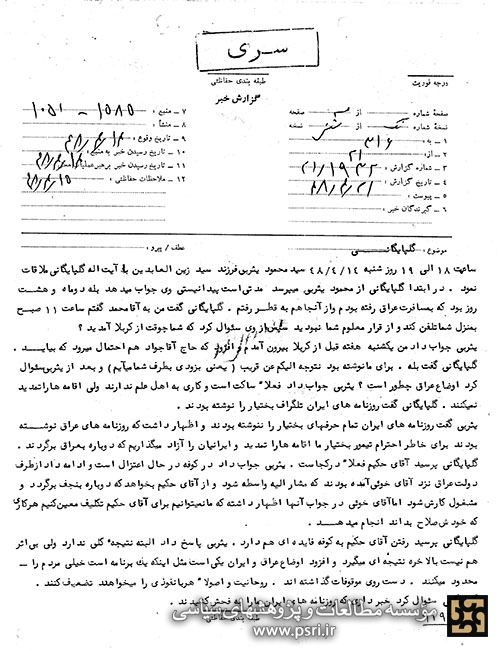 سری
طبقه بندی حفاظتی
درجه فوریت
گزارش خبر
صفحه شماره : از ۳ صفحه
نسخه شماره : یک از نسخه
۱ ـ به : ۳۱۶
۲ ـ از : ۲۱
۳ ـ شماره گزارش :
۴ ـ تاریخ گزارش : ۴۸/۴/۲۱
۵ ـ پیوست :
۶ ـ گیرندگان خبر :
۷ ـ منبع : ۱۵۸۵ - ۱۰۵۱
۸ ـ منشأ :
۹ ـ تاریخ وقوع : ۴۸/۴/۱۴
۱۰ ـ تاریخ رسیدن خبر به منبع :
۱۱ ـ تاریخ رسیدن خبر برهبر عملیات
۱۲ ـ ملاحظات حفاظتی :
موضوع : گلپایگانی
عطف / پیرو :
ساعت ۱۸ الی ۱۹ روز شنبه ۴۸/۴/۱۴ سید محمود یثربی فرزند سید زین العابدین با آیت اله گلپایگانی ملاقات
نمود . در ابتدا گلپایگانی از محمود یثربی میپرسد مدتی است پیدا نیستی وی جواب میدهد بله دو ماه و هشت
روز بود که بمسافرت عراق رفته بودم و از آنجا هم به قطر رفتم . گلپایگانی گفت من به آقا محمد گفتم ساعت ۱۱ صبح
بمنزل شما تلفن کند و از قرار معلوم شما نبودید سپس از وی سئوال کرد که شما چه وقت از کربلا آمدید ؟
یثربی جواب داد من یکشنبه هفته قبل از کربلا بیرون آمدم و افزود که حاج آقا جواد هم احتمال میرود که بیایـد .
گلپایگانی گفت بله . برای ما نوشته بود نتوجه الیکم عن قریب ( یعنی بزودی بطرف شما میآیم) و بعد از یثربی سئوال
کرد اوضاع عراق چطور است ؟ یثربی جواب داد فعلاً ساکت است و کاری به اهل علم ندارند ولی اقامه ها را تمدید
نمیکنند . گلپایگانی گفت روزنامه های ایران تلگراف بختیار را نوشته بودند .
یثربی گفت روزنامه های ایران تمام حرفهای بختیار را ننوشته بودند و اظهار داشت که روزنامه های عراق نوشـته
بودند برای خاطر احترام تیمور بختیار ما اقامه ها را تمدید و ایرانیان را آزاد میگذاریم که دوباره بعراق برگردند .
گلپایگانی پرسید آقای حکیم فعلاً در کجاست . یثربی جواب داد در کوفه در حال اعتزال است و ادامه داد از طرف
دولت عراق نزد آقای خوئی آمده بودند که مشار الیه واسطه شود و از آقای حکیم بخواهد که دوباره بنجف برگردد و
مشغول کارش شود اما آقای خوئی در جواب آنها اظهار داشته که ما نمیتوانیم برای آقای حکیم تکلیف معین کنیم هرکاری
که خودش صلاح بداند انجام میدهـد .
گلپایگانی پرسید رفتن آقای حکیم به کوفه فایده ای هم دارد . یثربی پاسخ داد البته نتیجهٔ کلی ندارد ولی بی اثر
هم نیست بالاخره نتیجه ای میگیرد و افزود اوضاع عراق و ایران یکی است مثل اینکه یک برنامه است خیلی مردم را ـ
محدود میکنند . دست روی موقوفات گذاشته اند . روحانیت و اصولاً هر بانفوذی را میخواهند تضعیف کنند .
سئوال کرد خبر داری که روزنامه های ایران ما را به فحش کشیدند .
طبقه بندی حفاظتی
مؤسسه مطالعات و پژوهشهای سیاسی
www.psri.ir